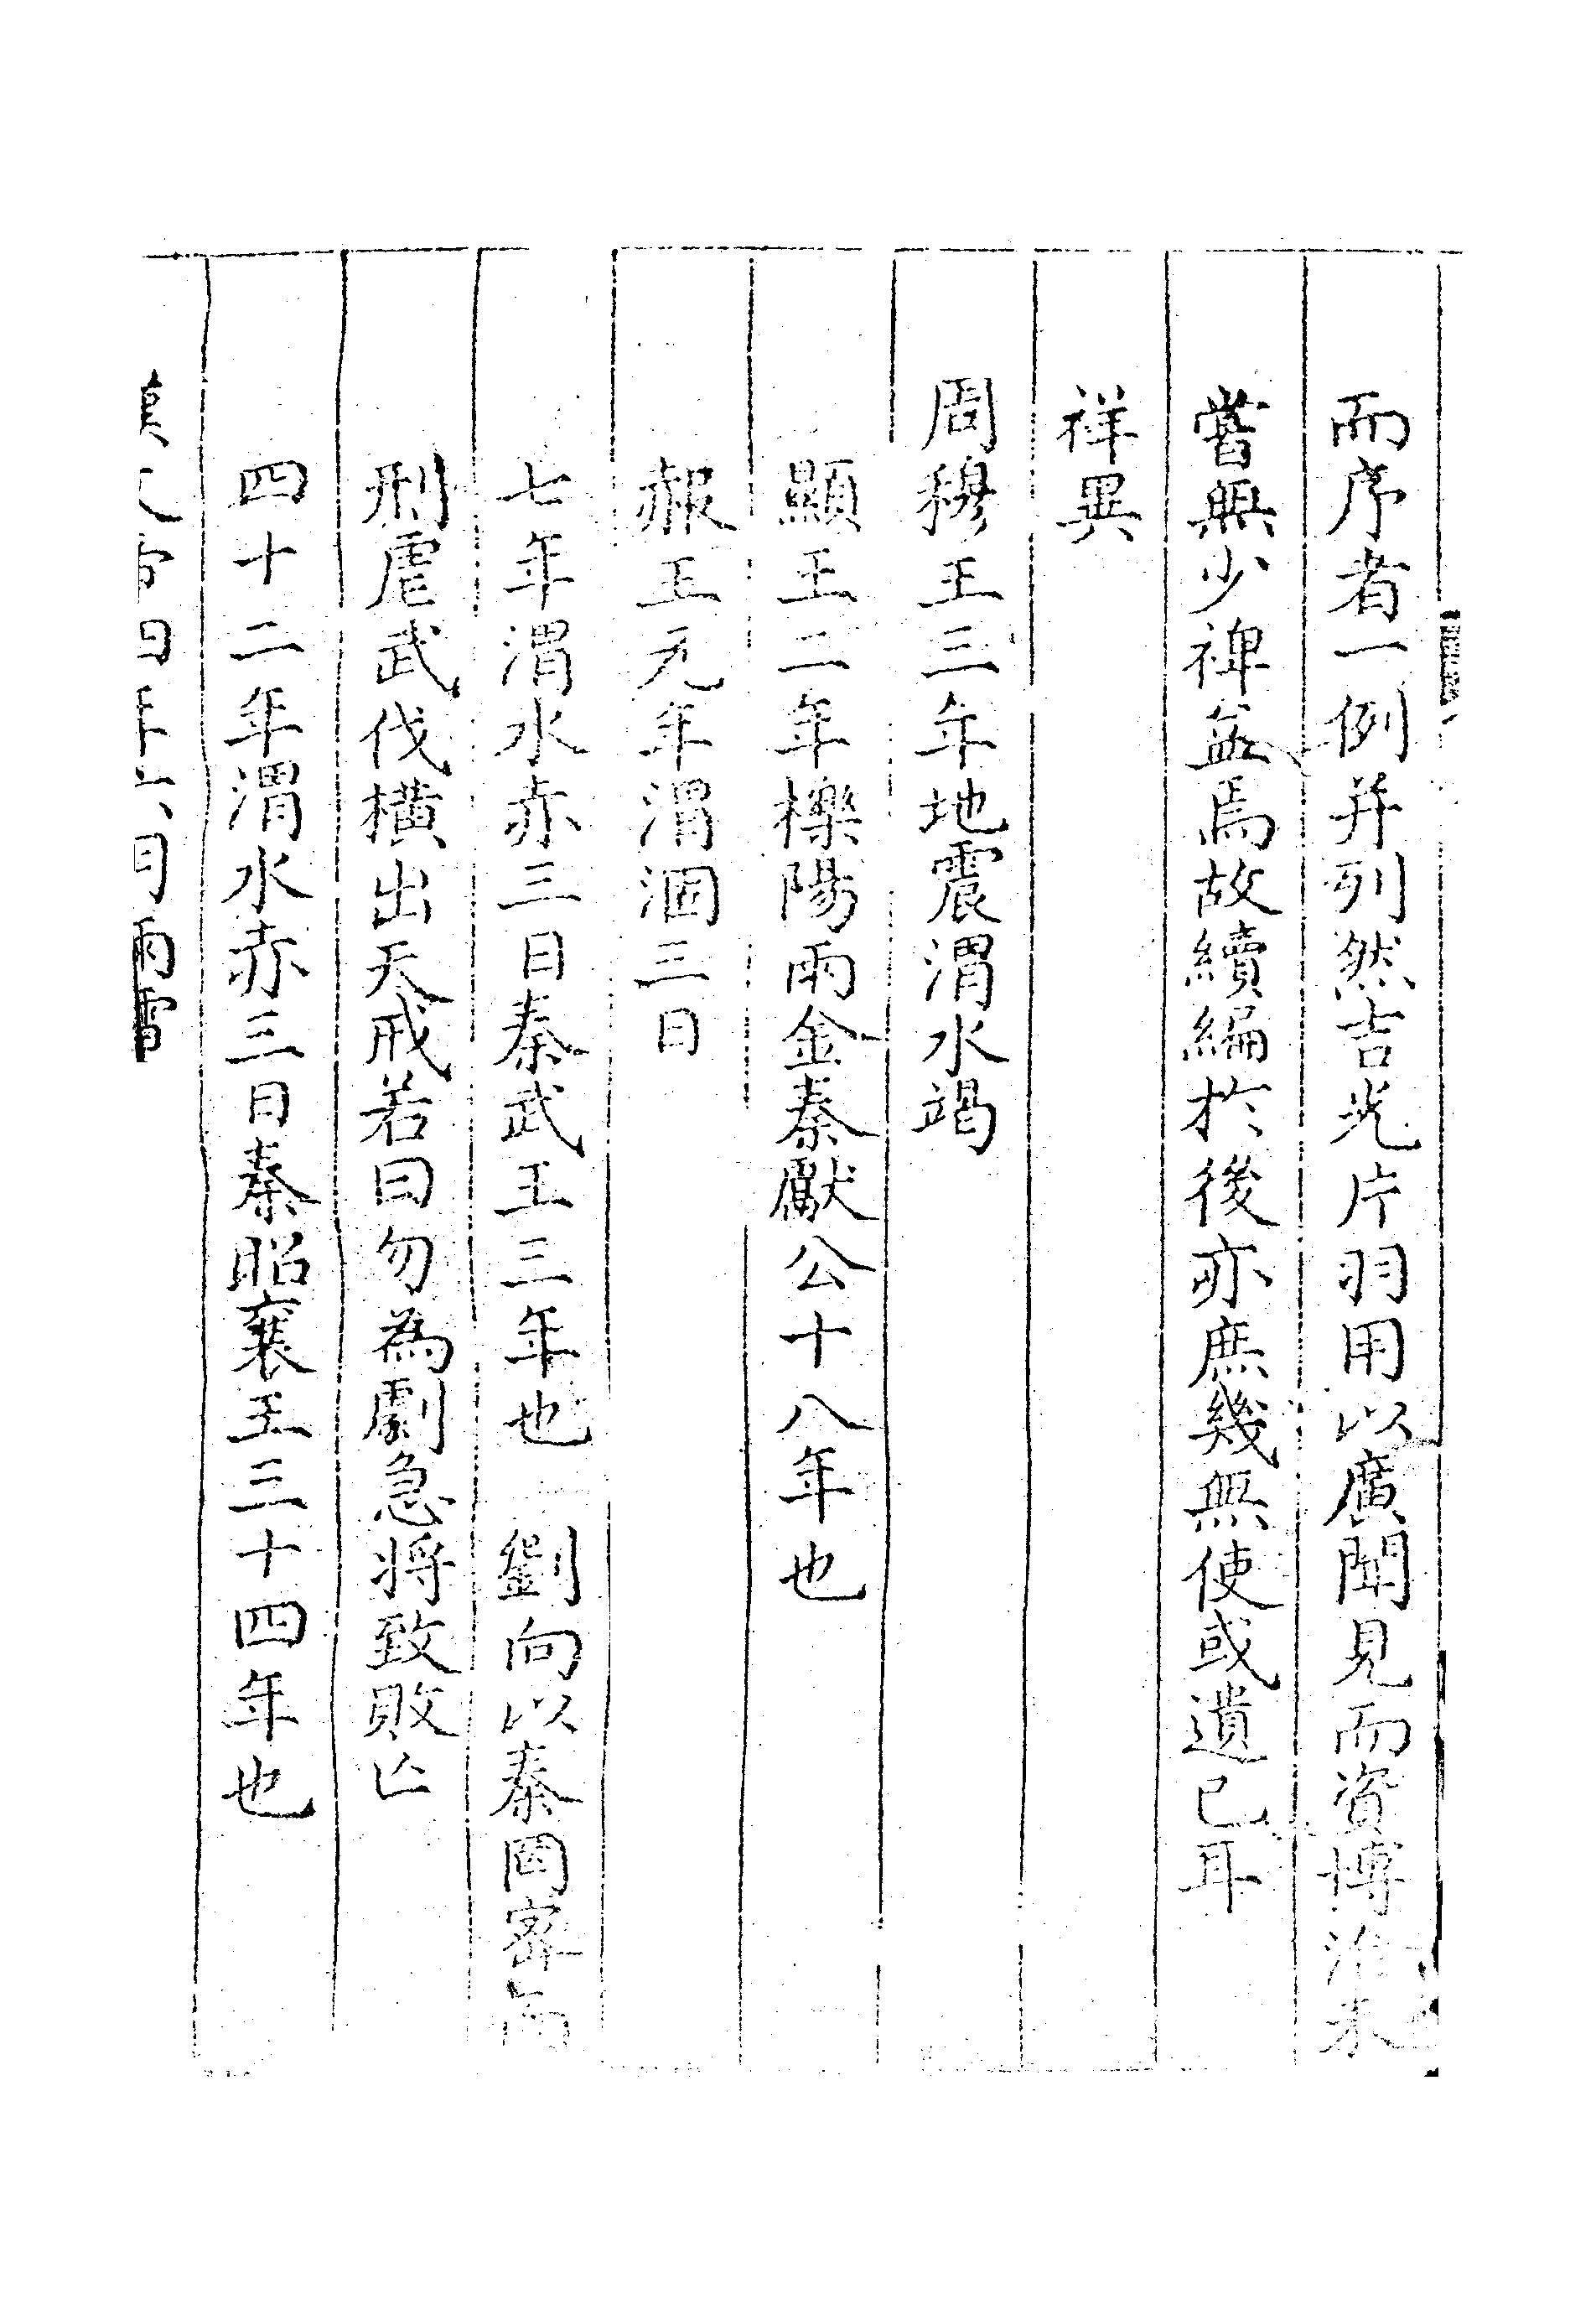 而序者一例并列然吉光片羽用以廣聞見而資博洽未
嘗無少裨益焉故續編於後亦庶幾無使或遺已耳
祥異
周穆王三年地震渭水竭
顯王二年櫟陽雨金秦獻公十八年也
赧王元年渭涸三日
七年渭水赤三日秦武王三年也 劉向以秦罔密而
刑虐武伐橫出天戒若曰勿為劇急將致敗亡
四十二年渭水赤三日秦昭襄王三十四年也
漢元帝四年六月雨雪